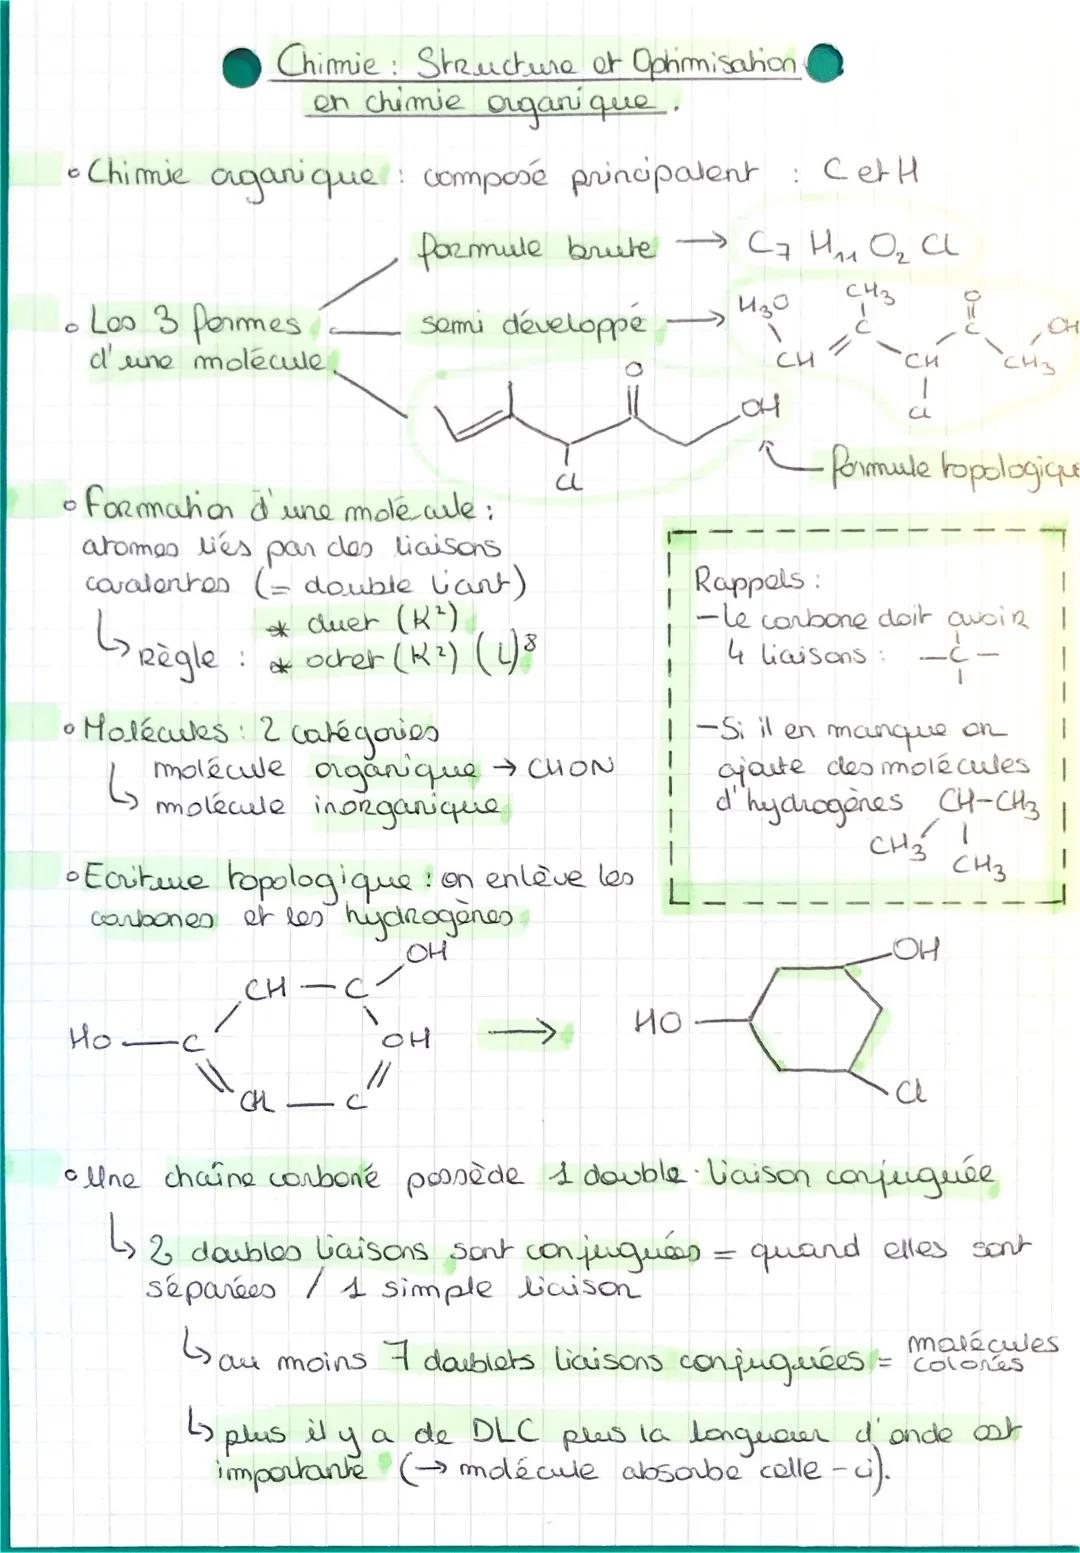 Chimie : Structure et Optimisation
en chimie organique.
Chimie organique : composé principalent : C et H
formule brute → C7 H11 O2 Cl
Les 3 formes
d'une molécule
semi développé →
H3O
CH
CH3
C
CH
Cl
O
C
CH3
OH
O
OH
Cl
formule topologique
Formation d'une molécule :
atomes liés par des liaisons
covalentes (= double liant)
Règle : * duet (K²)
* octet (K²) (L)⁸
Rappels :
- Le carbone doit avoir
4 liaisons : - C -
- Si il en manque on
ajoute des molécules
d'hydrogènes CH-CH3
CH3 CH3
Molécules : 2 catégories
molécule organique → CHON
molécule inorganique
Ecriture topologique : on enlève les
carbones et les hydrogènes
OH
CH - C
HO - C OH
CH - C
→
OH
HO
Cl
Une chaîne carboné possède 1 double liaison conjuguée
↳ 2 doubles liaisons sont conjuguées = quand elles sont
séparées / 1 simple liaison
↳ au moins 7 doublets liaisons conjuguées = molécules
colorés
↳ plus il y a de DLC plus la longueur d'onde est
importante (→ molécule absorbe celle-ci).